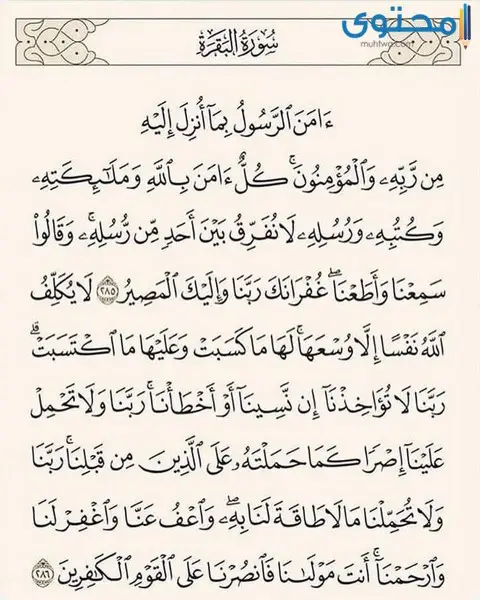 محتوى
muhtwa.com
سُورَةُ البَقَرَةِ
ءَامَنَ ٱلرَّسُولُ بِمَآ أُنزِلَ إِلَيْهِ
مِن رَّبِّهِۦ وَٱلْمُؤْمِنُونَ ۚ كُلٌّ ءَامَنَ بِٱللَّهِ وَمَلَـٰٓئِكَتِهِۦ
وَكُتُبِهِۦ وَرُسُلِهِۦ لَا نُفَرِّقُ بَيْنَ أَحَدٍ مِّن رُّسُلِهِۦ ۚ وَقَالُوا۟
سَمِعْنَا وَأَطَعْنَا ۖ غُفْرَانَكَ رَبَّنَا وَإِلَيْكَ ٱلْمَصِيرُ ٢٨٥ لَا يُكَلِّفُ
ٱللَّهُ نَفْسًا إِلَّا وُسْعَهَا ۚ لَهَا مَا كَسَبَتْ وَعَلَيْهَا مَا ٱكْتَسَبَتْ ۗ
رَبَّنَا لَا تُؤَاخِذْنَآ إِن نَّسِينَآ أَوْ أَخْطَأْنَا ۚ رَبَّنَا وَلَا تَحْمِلْ
عَلَيْنَآ إِصْرًا كَمَا حَمَلْتَهُۥ عَلَى ٱلَّذِينَ مِن قَبْلِنَا ۚ رَبَّنَا
وَلَا تُحَمِّلْنَا مَا لَا طَاقَةَ لَنَا بِهِۦ ۖ وَٱعْفُ عَنَّا وَٱغْفِرْ لَنَا
وَٱرْحَمْنَآ ۚ أَنتَ مَوْلَىٰنَا فَٱنصُرْنَا عَلَى ٱلْقَوْمِ ٱلْكَـٰفِرِينَ ٢٨٦